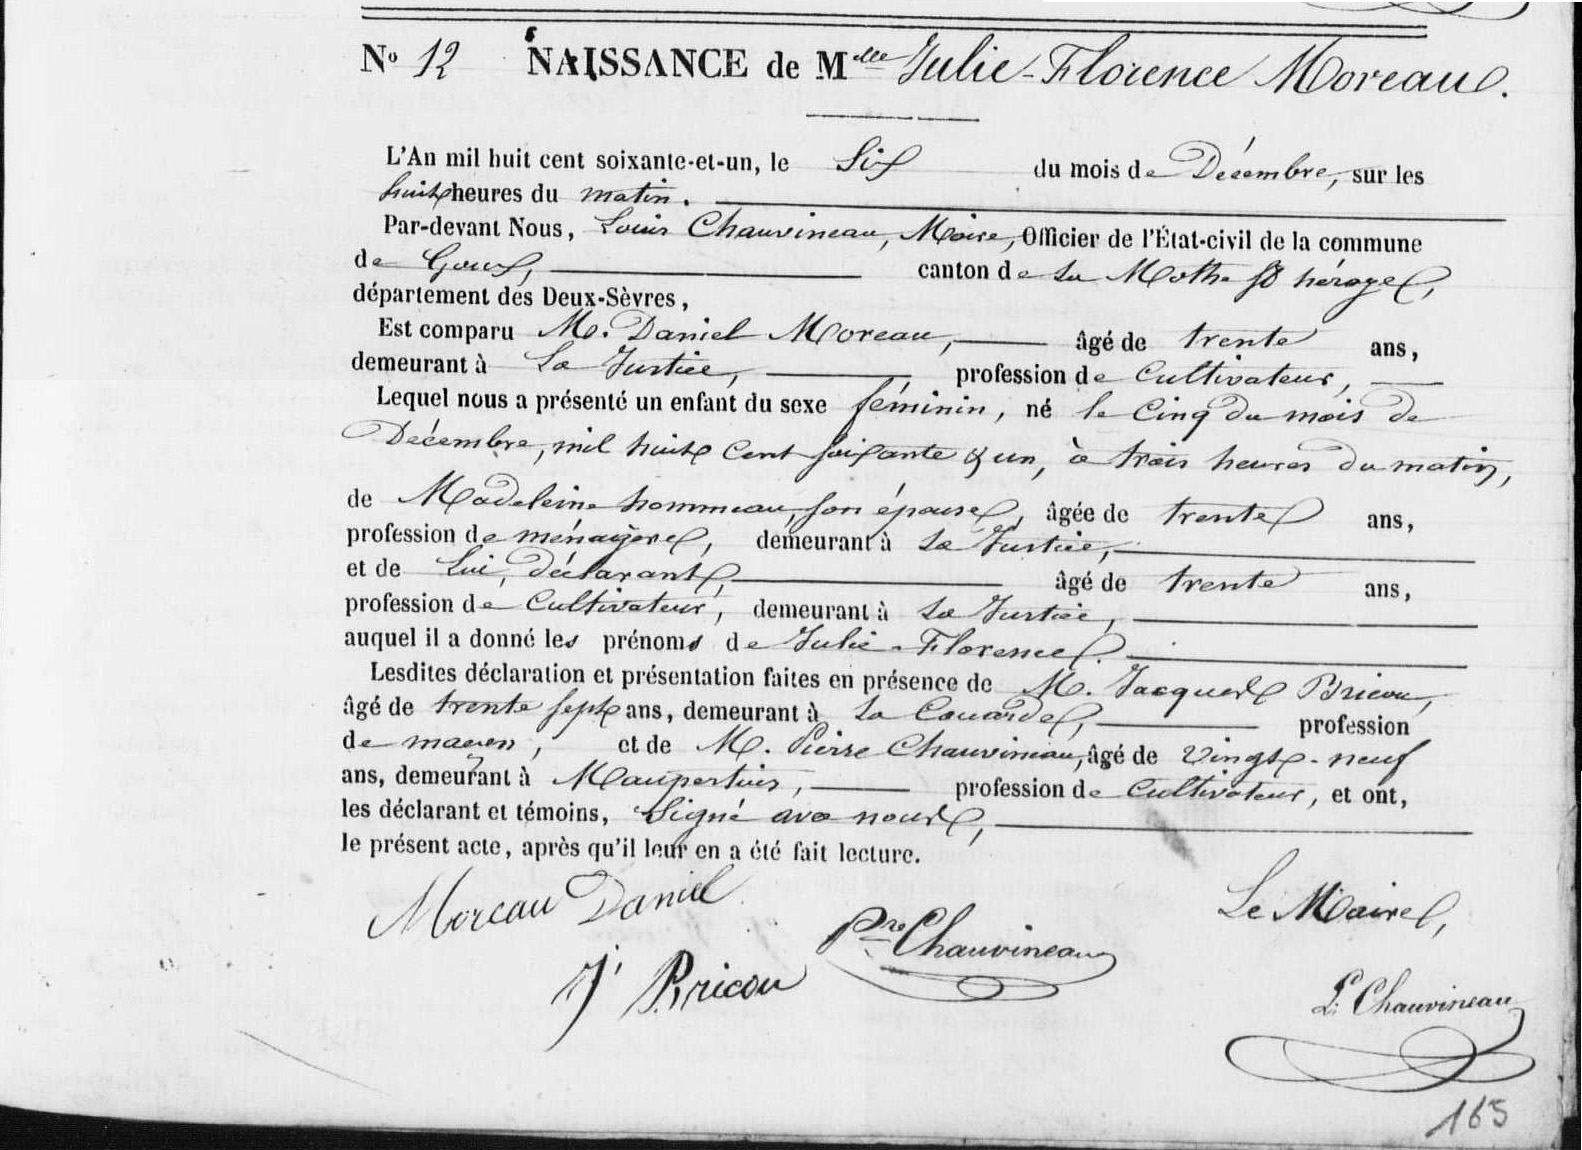 No 12 NAISSANCE de Mdelle Julie-Florence Moreau.
L'An mil huit cent soixante-et-un, le Six du mois de Décembre, sur les
huit heures du matin.
Par-devant Nous, Louis Chauvineau, Maire, Officier de l'État-civil de la commune
de Goux, canton de La Mothe St héraye,
département des Deux-Sèvres,
Est comparu M. Daniel Moreau, âgé de trente ans,
demeurant à La Justice, profession de Cultivateur,
Lequel nous a présenté un enfant du sexe féminin, né le Cinq du mois de
Décembre, mil huit Cent soixante & un, à trois heures du matin,
de Madeleine hommeau, son épouse, âgée de trente ans,
profession de ménagère, demeurant à La Justice,
et de Lui, déclarant, âgé de trente ans,
profession de Cultivateur, demeurant à La Justice,
auquel il a donné les prénoms de Julie-Florence.
Lesdites déclaration et présentation faites en présence de M. Jacques Bricou,
âgé de trente sept ans, demeurant à La Couarde, profession
de maçon, et de M. Pierre Chauvineau, âgé de Vingt-neuf
ans, demeurant à Maupertuis, profession de Cultivateur, et ont,
les déclarant et témoins, Signé avec nous,
le présent acte, après qu'il leur en a été fait lecture.
Moreau Daniel
Le Maire,
Pre Chauvineau
J. Bricou
L. Chauvineau
165